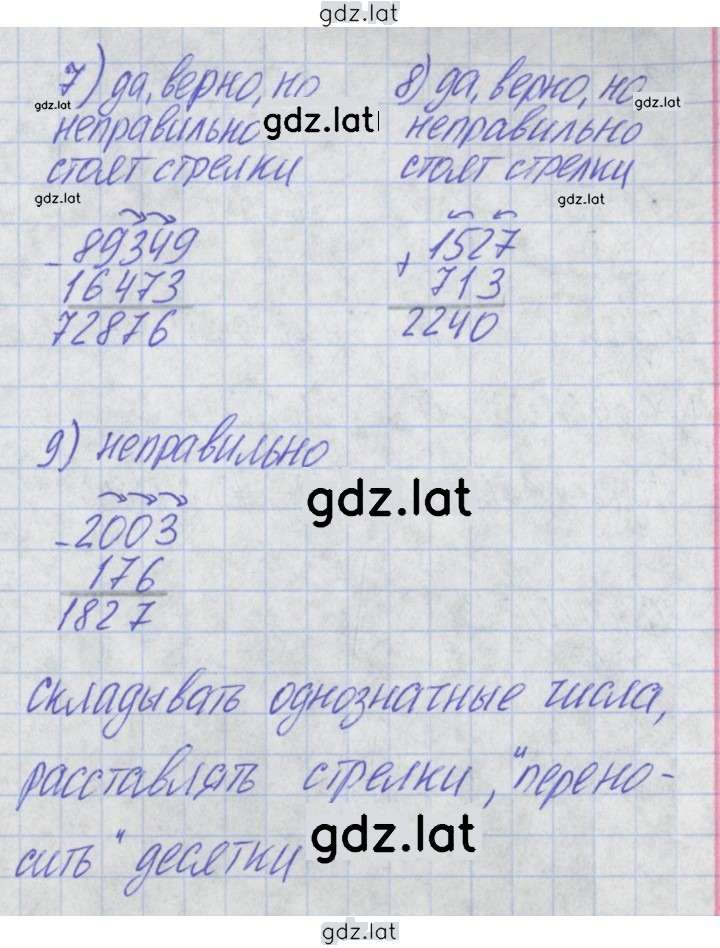 gdz.lat
7) да, верно, но
неправильно
стоят стрелки
8) да, верно, но
неправильно
стоят стрелки
gdz.lat
gdz.lat
gdz.lat
gdz.lat
gdz.lat
- 89349
16473
72876
+ 1527
713
2240
9) неправильно
gdz.lat
- 2003
176
1827
складывать однозначные числа,
расставлять стрелки, "перено-
сить" десятки
gdz.lat
gdz.lat